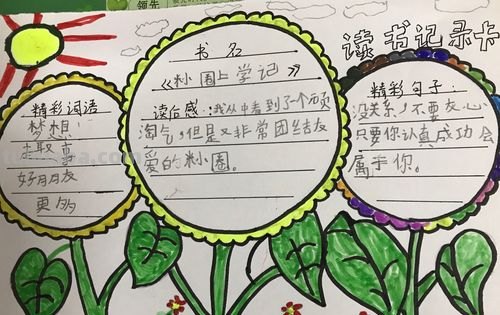 领先
读书记录卡
书名
《米小圈上学记》
读后感:我从中看到了一个顽
淘气,但是又非常团结友
爱的米小圈。
精彩词语
梦想
有趣
好朋友
更多
精彩句子:
没关系,不要灰心
只要你认真成功会
属于你。